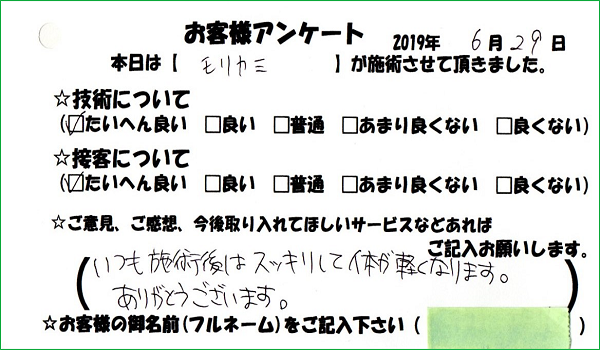 お客様アンケート 2019年 6月29日
本日は【 モリカミ 】が施術させて頂きました。
☆技術について
(☑たいへん良い □良い □普通 □あまり良くない □良くない)
☆接客について
(☑たいへん良い □良い □普通 □あまり良くない □良くない)
☆ご意見、ご感想、今後取り入れてほしいサービスなどあれば
ご記入お願いします。
(いつも施術後はスッキリして体が軽くなります。
ありがとうございます。)
☆お客様の御名前(フルネーム)をご記入下さい( )